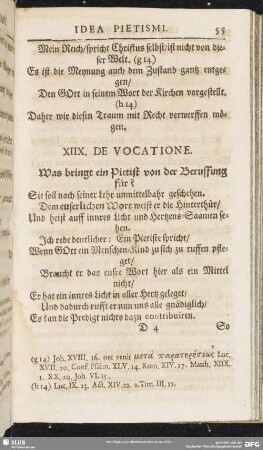 IDEA PIETISMI. 55
Mein Reich/ spricht Christus selbst/ ist nicht von die-
ser Welt. (g 14)
Es ist die Meynung auch dem Zustand gantz entge-
gen/
Den GOtt in seinem Wort der Kirchen vorgestellt.
(h 14)
Daher wir diesen Traum mit Recht verwerffen mö-
gen.
XIIX. DE VOCATIONE.
Was bringt ein Pietist von der Beruffung
für?
Sie soll nach seiner Lehr unmittelbahr geschehen.
Dem euserlichen Wort weist er die Hinterthür/
Und heist auff innres Licht und Hertzens-Saamen se-
hen.
Ich rede deutlicher: Ein Pietiste spricht/
Wenn GOtt ein Menschen-Kind zu sich zu ruffen pfle-
get/
Braucht er das eusre Wort hier als ein Mittel
nicht/
Er hat ein innres Licht in aller Hertz geleget/
Und dadurch rufft er nun uns alle gnädiglich/
Es kan die Predigt nichts dazu contribuiren.
D 4 So
(g 14) Joh. XVIII, 36. non venit μετὰ παρατηρήσεως Luc.
XVII, 20. Conf. Psalm. XLV, 14. Rom. XIV, 17. Matth. XIIX,
1. XX, 20. Joh. VI, 15.
(h 14) Luc. IX. 23. Act. XIV, 22. 2. Tim. III, 12.
SLUB
DFG